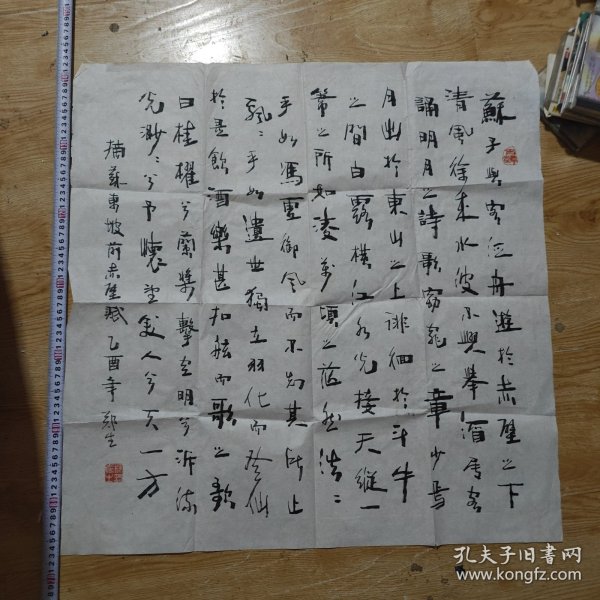 蘇子與客泛舟遊於赤壁之下
清風徐來水波不興舉酒屬客
誦明月之詩歌窈窕之章少焉
月出於東山之上徘徊於斗牛
之間白露橫江水光接天縱一
葦之所如凌萬頃之茫然浩〻
乎如馮虛御風而不知其所止
飄〻乎如遺世獨立羽化而登仙
於是飲酒樂甚扣舷而歌之歌
曰桂櫂兮蘭槳擊空明兮泝流
光渺〻兮予懷望美人兮天一方
摘蘇東坡前赤壁賦 乙酉年
孔夫子旧书网
www.kongfz.com